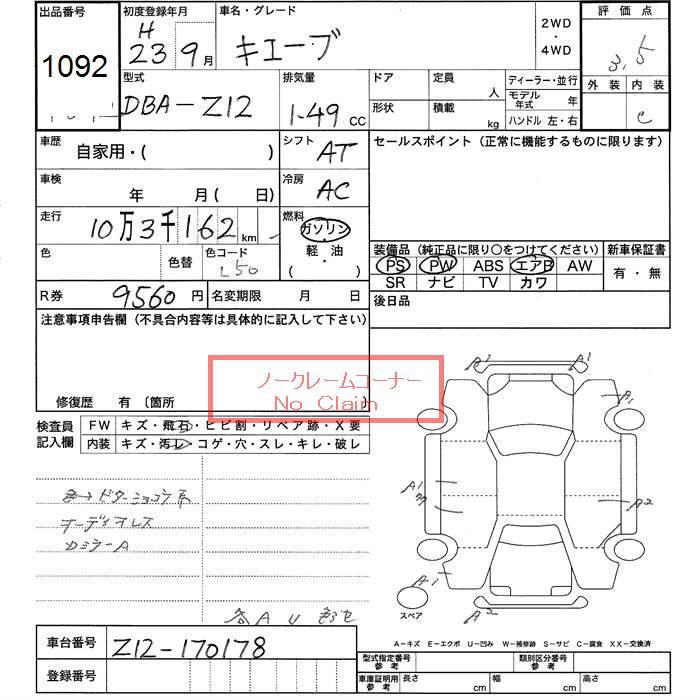 出品番号 初度登録年月 車名・グレード 2WD・4WD 評価点
1092 H 23 9月 キューブ 3.5
外装 内装 C
型式 排気量 ドア 定員 人 ディーラー・並行
DBA-Z12 1.49 CC 形状 積載 kg モデル年式 年
ハンドル 左・右
車歴 自家用・( ) シフト AT セールスポイント (正常に機能するものに限ります)
車検 年 月( 日) 冷房 AC
走行 10万3千162km 燃料 ガソリン・軽・油 ( )
色 色替 色コード L50
装備品 (純正品に限り〇をつけてください) 新車保証書
PS PW ABS エアB AW 有・無
SR ナビ TV カワ
R券 9560円 名変期限 月 日 後日品
注意事項申告欄 (不具合内容等は具体的に記入して下さい)
ノークレームコーナー
No Claim
修復歴 有 〔箇所
検査員記入欄 FW キズ・飛石・ヒビ割・リペア跡・X要
内装 キズ・汚レ・コゲ・穴・スレ・キレ・破レ
A1 A1
A1
A1
A2
オーディオレス
Dミラー A
A1
スペア
A2
各 A U
A-キズ E-エクボ U-凹み W-補修跡 S-サビ C-腐食 XX-交換済
車台番号 Z12-170178
登録番号
型式指定番号 参考 類別区分番号 参考
車庫証明用 参考 長さ cm 幅 cm 高さ cm